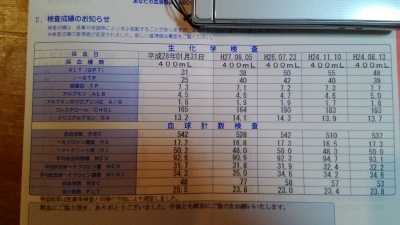 II. 検査成績のお知らせ
生 化 学 検 査
採 血 日 平成28年01月21日 H27.09.05 H26.07.23 H24.11.10 H24.08.13
採 血 種 類 400mL 400mL 400mL 400mL 400mL
ALT (GPT) 31 38 50 55 48
γ-GTP 25 40 42 40 39
総蛋白 TP 7.3 7.1 7.2 7.7 7.7
アルブミン ALB 4.5 4.5 4.7 4.6 5.0
アルブミン対グロブリン比 A/G 1.6 1.9 1.9 1.7 1.8
コレステロール CHOL 165 164 183 193
グリコアルブミン GA 13.2 14.1 14.3 13.9 13.7
血 球 計 数 検 査
赤血球数 RBC 542 528 542 510 537
ヘモグロビン量 Hb 17.2 16.8 17.3 16.5 17.3
ヘマトクリット値 Ht 50.2 48.0 50.0
平均赤血球容積 MCV 92.6 90.9 92.3 94.7 93.1
平均赤血球ヘモグロビン量 MCH 31.7 31.8 31.9 32.4 32.2
平均赤血球ヘモグロビン濃度 MCHC 34.3 35.0 34.6 34.2 34.6
白血球数 WBC 77 58 57 53
血小板数 PLT 25.5 23.8 23.0 23.4 23.8